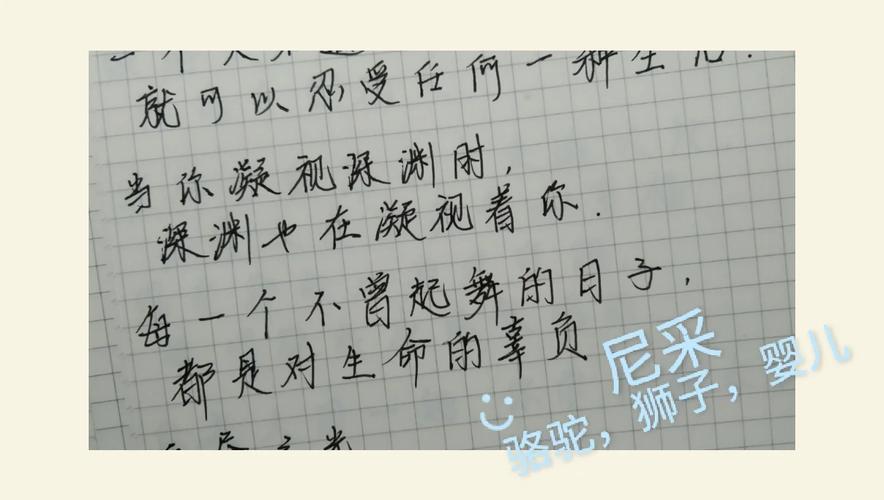 就可以忍受任何一种生
当你凝视深渊时，
深渊也在凝视着你.
每一个不曾起舞的日子，
都是对生命的辜负
尼采
骆驼，狮子，婴儿